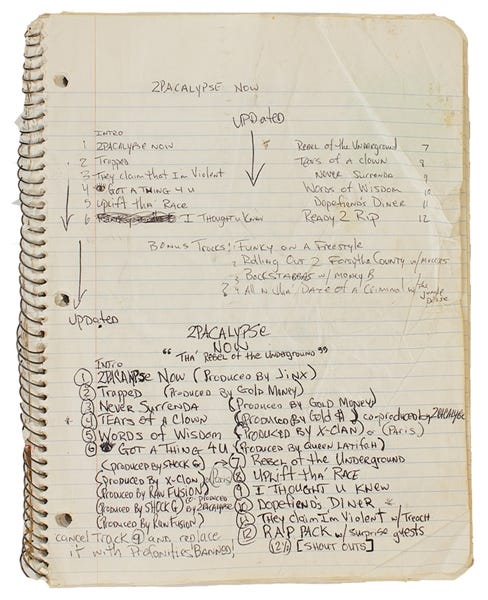 2PACALYPSE NOW
UPDATED
INTRO
1 2PACALYPSE NOW
2 Trapped
3 They claim that Im Violent
4 GOT A THING 4 U
5 Uplift tha' RACE
6 I Thought u Knew
Rebel of the Underground 7
Tears of a clown 8
Never Surrenda 9
Words of Wisdom 10
Dopefiends Diner 11
Ready 2 Rip 12
Bonus Tracks: Funky on a Freestyle
2 Rolling Out 2 Forsythe County w/
3 BACKSTABBAS w/ Money B
? 4 All N tha' Daze of a Criminal w/ the Jungle
UPDATED
2PACALYPSE
NOW
"THA' REBEL OF THE UNDERGROUND"
Intro
1 2PACALYPSE NOW (PRODUCED BY JINX)
2 TRAPPED (PRODUCED BY GOLD MONEY)
3 NEVER SURRENDA (PRODUCED BY GOLD MONEY)
* 4 TEARS OF A CLOWN (PRODUCED BY GOLD $) co-produced by 2PACALYPSE
5 WORDS OF WISDOM (PRODUCED BY X-CLAN) or (PARIS)
6 GOT A THING 4 U (PRODUCED BY QUEEN LATIFAH)
(PRODUCED BY SHOCK G) 7 REBEL OF THE UNDERGROUND
(PRODUCED BY X-CLAN) (PARIS) 8 UPLIFT THA' RACE
(PRODUCED BY RAW FUSION) 9 I THOUGHT U KNEW
(PRODUCED BY SHOCK G) co-produced by 2PACALYPSE 10 DOPEFIENDS DINER
(PRODUCED BY RAW FUSION) 11 They claim Im Violent w/ TREACH
cancel Track 9 and replace 12 RAP PACK w/ surprise guests
it with Profanities BANNED! 12½ [SHOUT OUTS]